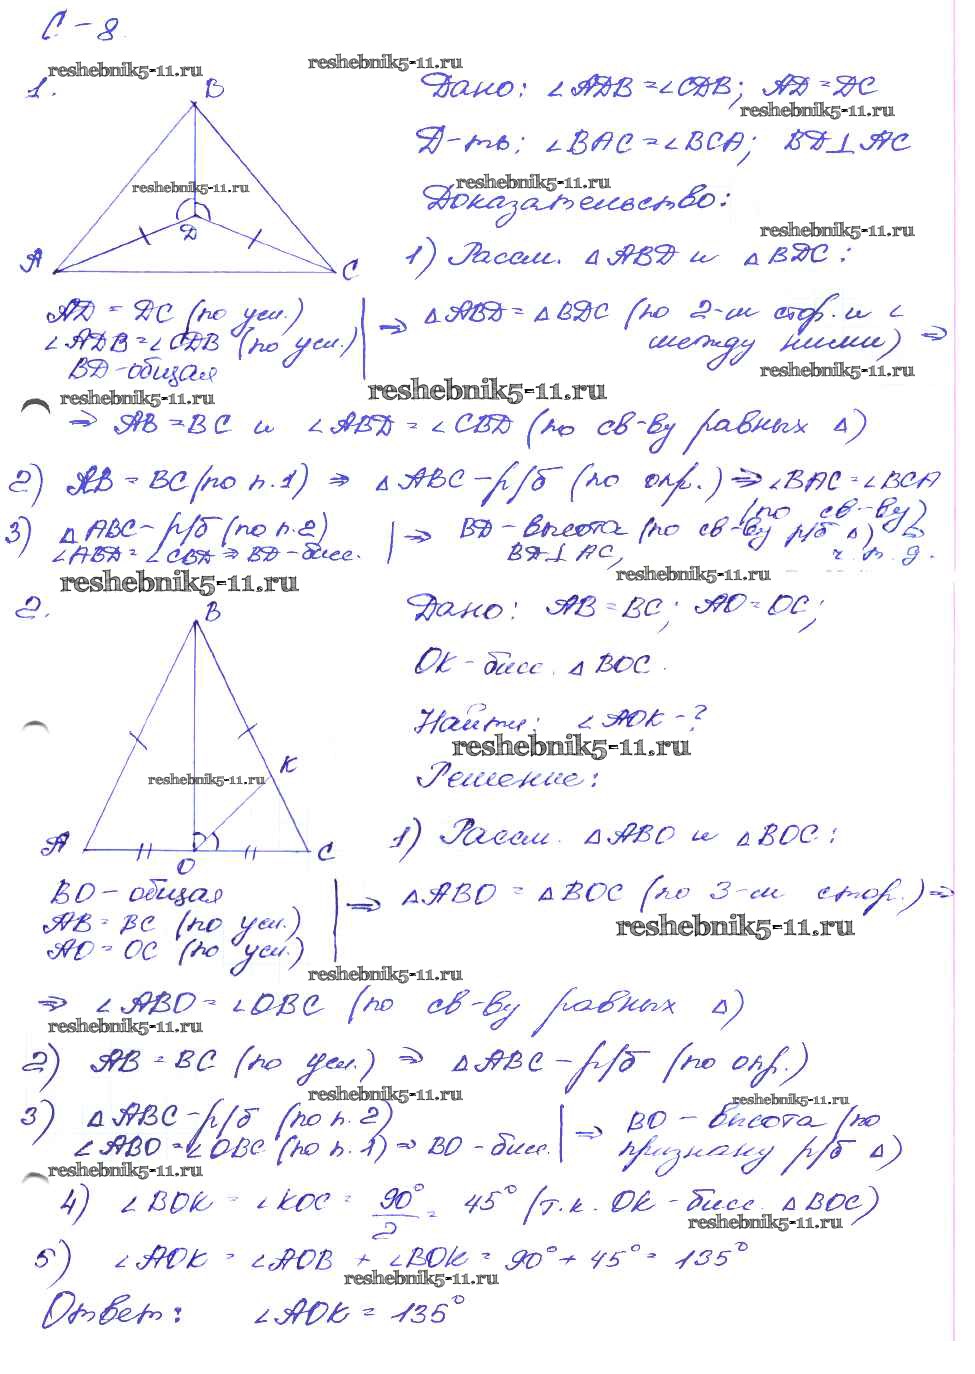 С-8.
reshebnik5-11.ru reshebnik5-11.ru
1. B Дано: ∠ADB = ∠CDB; AD = DC
reshebnik5-11.ru
Д-ть: ∠BAC = ∠BCA; BD⊥AC
reshebnik5-11.ru reshebnik5-11.ru
Доказательство:
D reshebnik5-11.ru
A C 1) Рассм. △ABD и △BDC:
AD = DC (по усл.)
∠ADB = ∠CDB (по усл.) ⇒ △ABD = △BDC (по 2-м стор. и ∠
BD-общая между ними) ⇒
reshebnik5-11.ru
reshebnik5-11.ru reshebnik5-11.ru
⇒ AB = BC и ∠ABD = ∠CBD (по св-ву равных △)
2) AB = BC (по п.1) ⇒ △ABC - р/б (по опр.) ⇒ ∠BAC = ∠BCA
(по св-ву)
3) △ABC - р/б (по п.2) ⇒ BD - высота (по св-ву р/б △)
∠ABD = ∠CBD ⇒ BD - бисс. BD⊥AC, ч.т.д.
reshebnik5-11.ru reshebnik5-11.ru
2. B Дано: AB = BC; AO = OC;
OK - бисс. △BOC.
Найти: ∠AOK - ?
reshebnik5-11.ru
K reshebnik5-11.ru Решение:
A O C 1) Рассм. △ABO и △BOC:
BO - общая
AB = BC (по усл.) ⇒ △ABO = △BOC (по 3-м стор.) ⇒
AO = OC (по усл.) reshebnik5-11.ru
reshebnik5-11.ru
⇒ ∠ABO = ∠OBC (по св-ву равных △)
reshebnik5-11.ru
2) AB = BC (по усл.) ⇒ △ABC - р/б (по опр.)
reshebnik5-11.ru reshebnik5-11.ru
3) △ABC - р/б (по п.2) ⇒ BO - высота (по
∠ABO = ∠OBC (по п.1) ⇒ BO - бисс. признаку р/б △)
reshebnik5-11.ru
4) ∠BOK = ∠KOC = 90°/2 = 45° (т.к. OK - бисс. △BOC)
reshebnik5-11.ru
5) ∠AOK = ∠AOB + ∠BOK = 90° + 45° = 135°
reshebnik5-11.ru
Ответ: ∠AOK = 135°